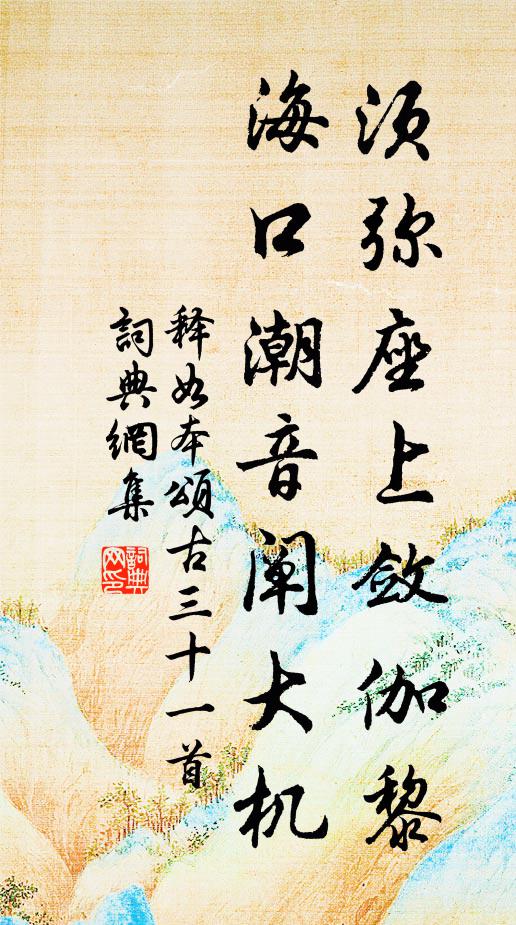 须弥座上敛伽黎
海口潮音阐大机
释如本颂古三十一首
詞典網集
詞典
网印